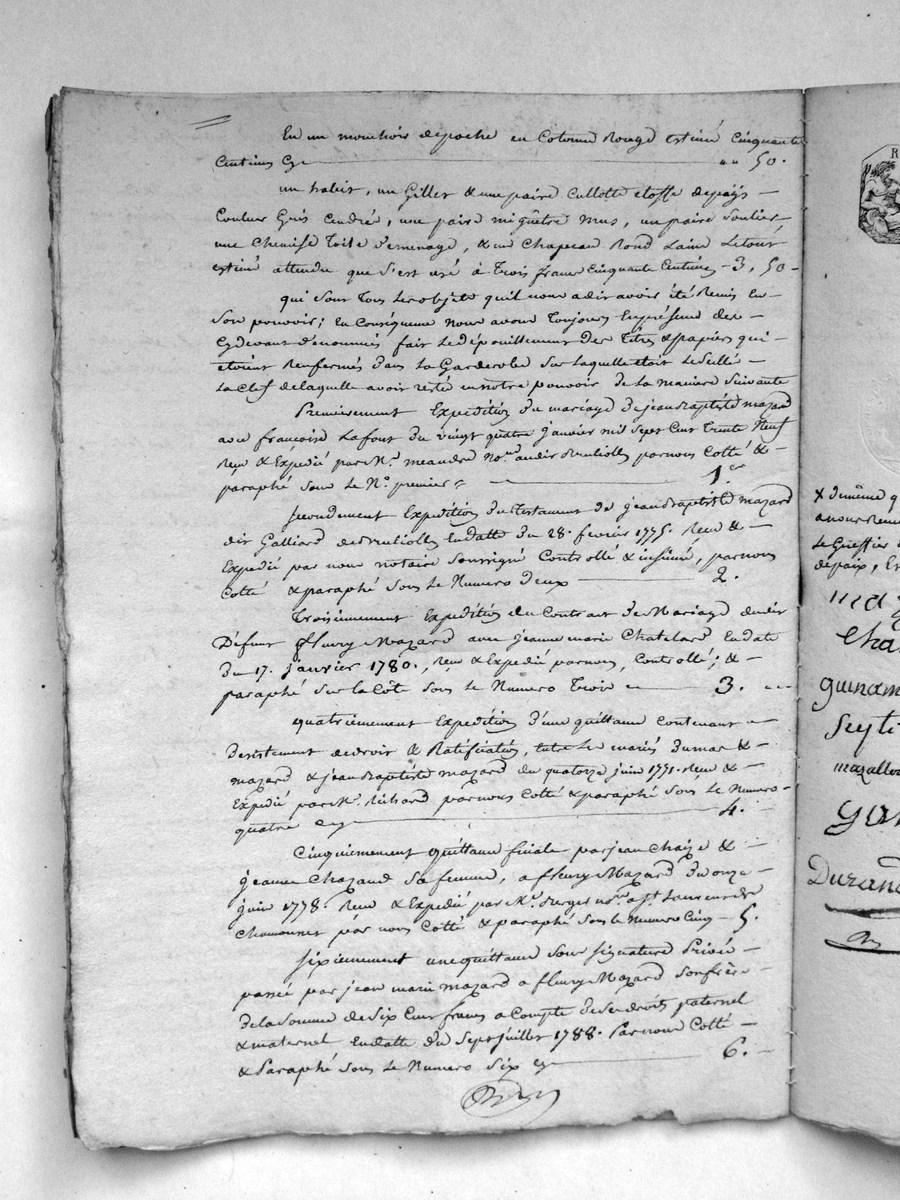 En un mouchoir depoche en Cotonne Rouge estimé Cinquante
Centimes Cy 50.
un habit, un Gillet & une paire Cullotte etoffe depays
Couleur Gris Cendrée, une paire migûêtre mus, un paire Soulier
une Chemise Toile d'emenage, & un Chapeau Rond Laine Le tout
estimé attendu que s'est usé à Trois francs Cinquante Centimes 3, 50
qui Sont Tous Les objets quil nous a dit avoir été Remis En
Son pouvoir; En Conséquence Nous avons Toujours En présence des
Cydevant d'enommés fait Le dépouillement des Titres & papiers qui
etoient Renfermés dans La Garderobe Sur Laquelle etoit Le Sçellé
La Clef de laquelle avoit resté en notre pouvoir de La maniere Suivante
Premierement Expedition du mariage de jean Baptiste mazard
avec francoise Lafont du vingt quatre janvier mil Sept Cent Trente Neuf
Reçu & Expedié par Mᵉ. meandre Noʳᵉ audit par nous Cotté &
paraphé Sous Le N°. premier 1.er
Secondement Expedition du Testament de jean Baptiste mazard
dit Galliard de En datte du 28. fevrier 1775. Reçu &
Expedié par nous notaire Soussigné Controllé & insinué, par nous
Cotté & paraphé Sous Le Numero deux 2.
Troisiemement Expedition du Contrat de Mariage dudit
Défunt fleury Mazard avec jeanne marie Chatelard En date
du 17. janvier 1780., Reçu & Expedié par nous, Controllé; &
paraphé Sur La Côte Sous Le Numero Trois 3.
quatriemement Expedition d'une quittance Contenant
desistement de droit & Ratification, entre Les mariés Dumas &
mazard & jean Baptiste mazard du quatorze juin 1771. Reçu &
Expedié par Mᵉ. Richard par nous Cotté & paraphé Sous Le Numero
quatre Cy 4.
Cinquiemement quittance finale par jean Chaize &
jeanne Chazaud Sa femme, a fleury Mazard du onze
juin 1778. Reçu & Expedié par Mᵉ. Surges noʳᵉ a Sᵗ. de
Chamousset par nous Cotté & paraphé Sous Le Numero Cinq 5.
Sixiemement une quittance Sous Signature Privée
passée par jean marie mazard a fleury Mazard Son frère
de La Somme de Six Cent francs a Compte de Ses droits paternel
& maternel En datte du Sept juillet 1788. Par nous Cotté
& Paraphé Sous Le Numero Six Cy 6.
& demême q
a nous Reme
Le Greffier
depaix, En
maz
Cha
guinam
Seyti
mazallon
Durand